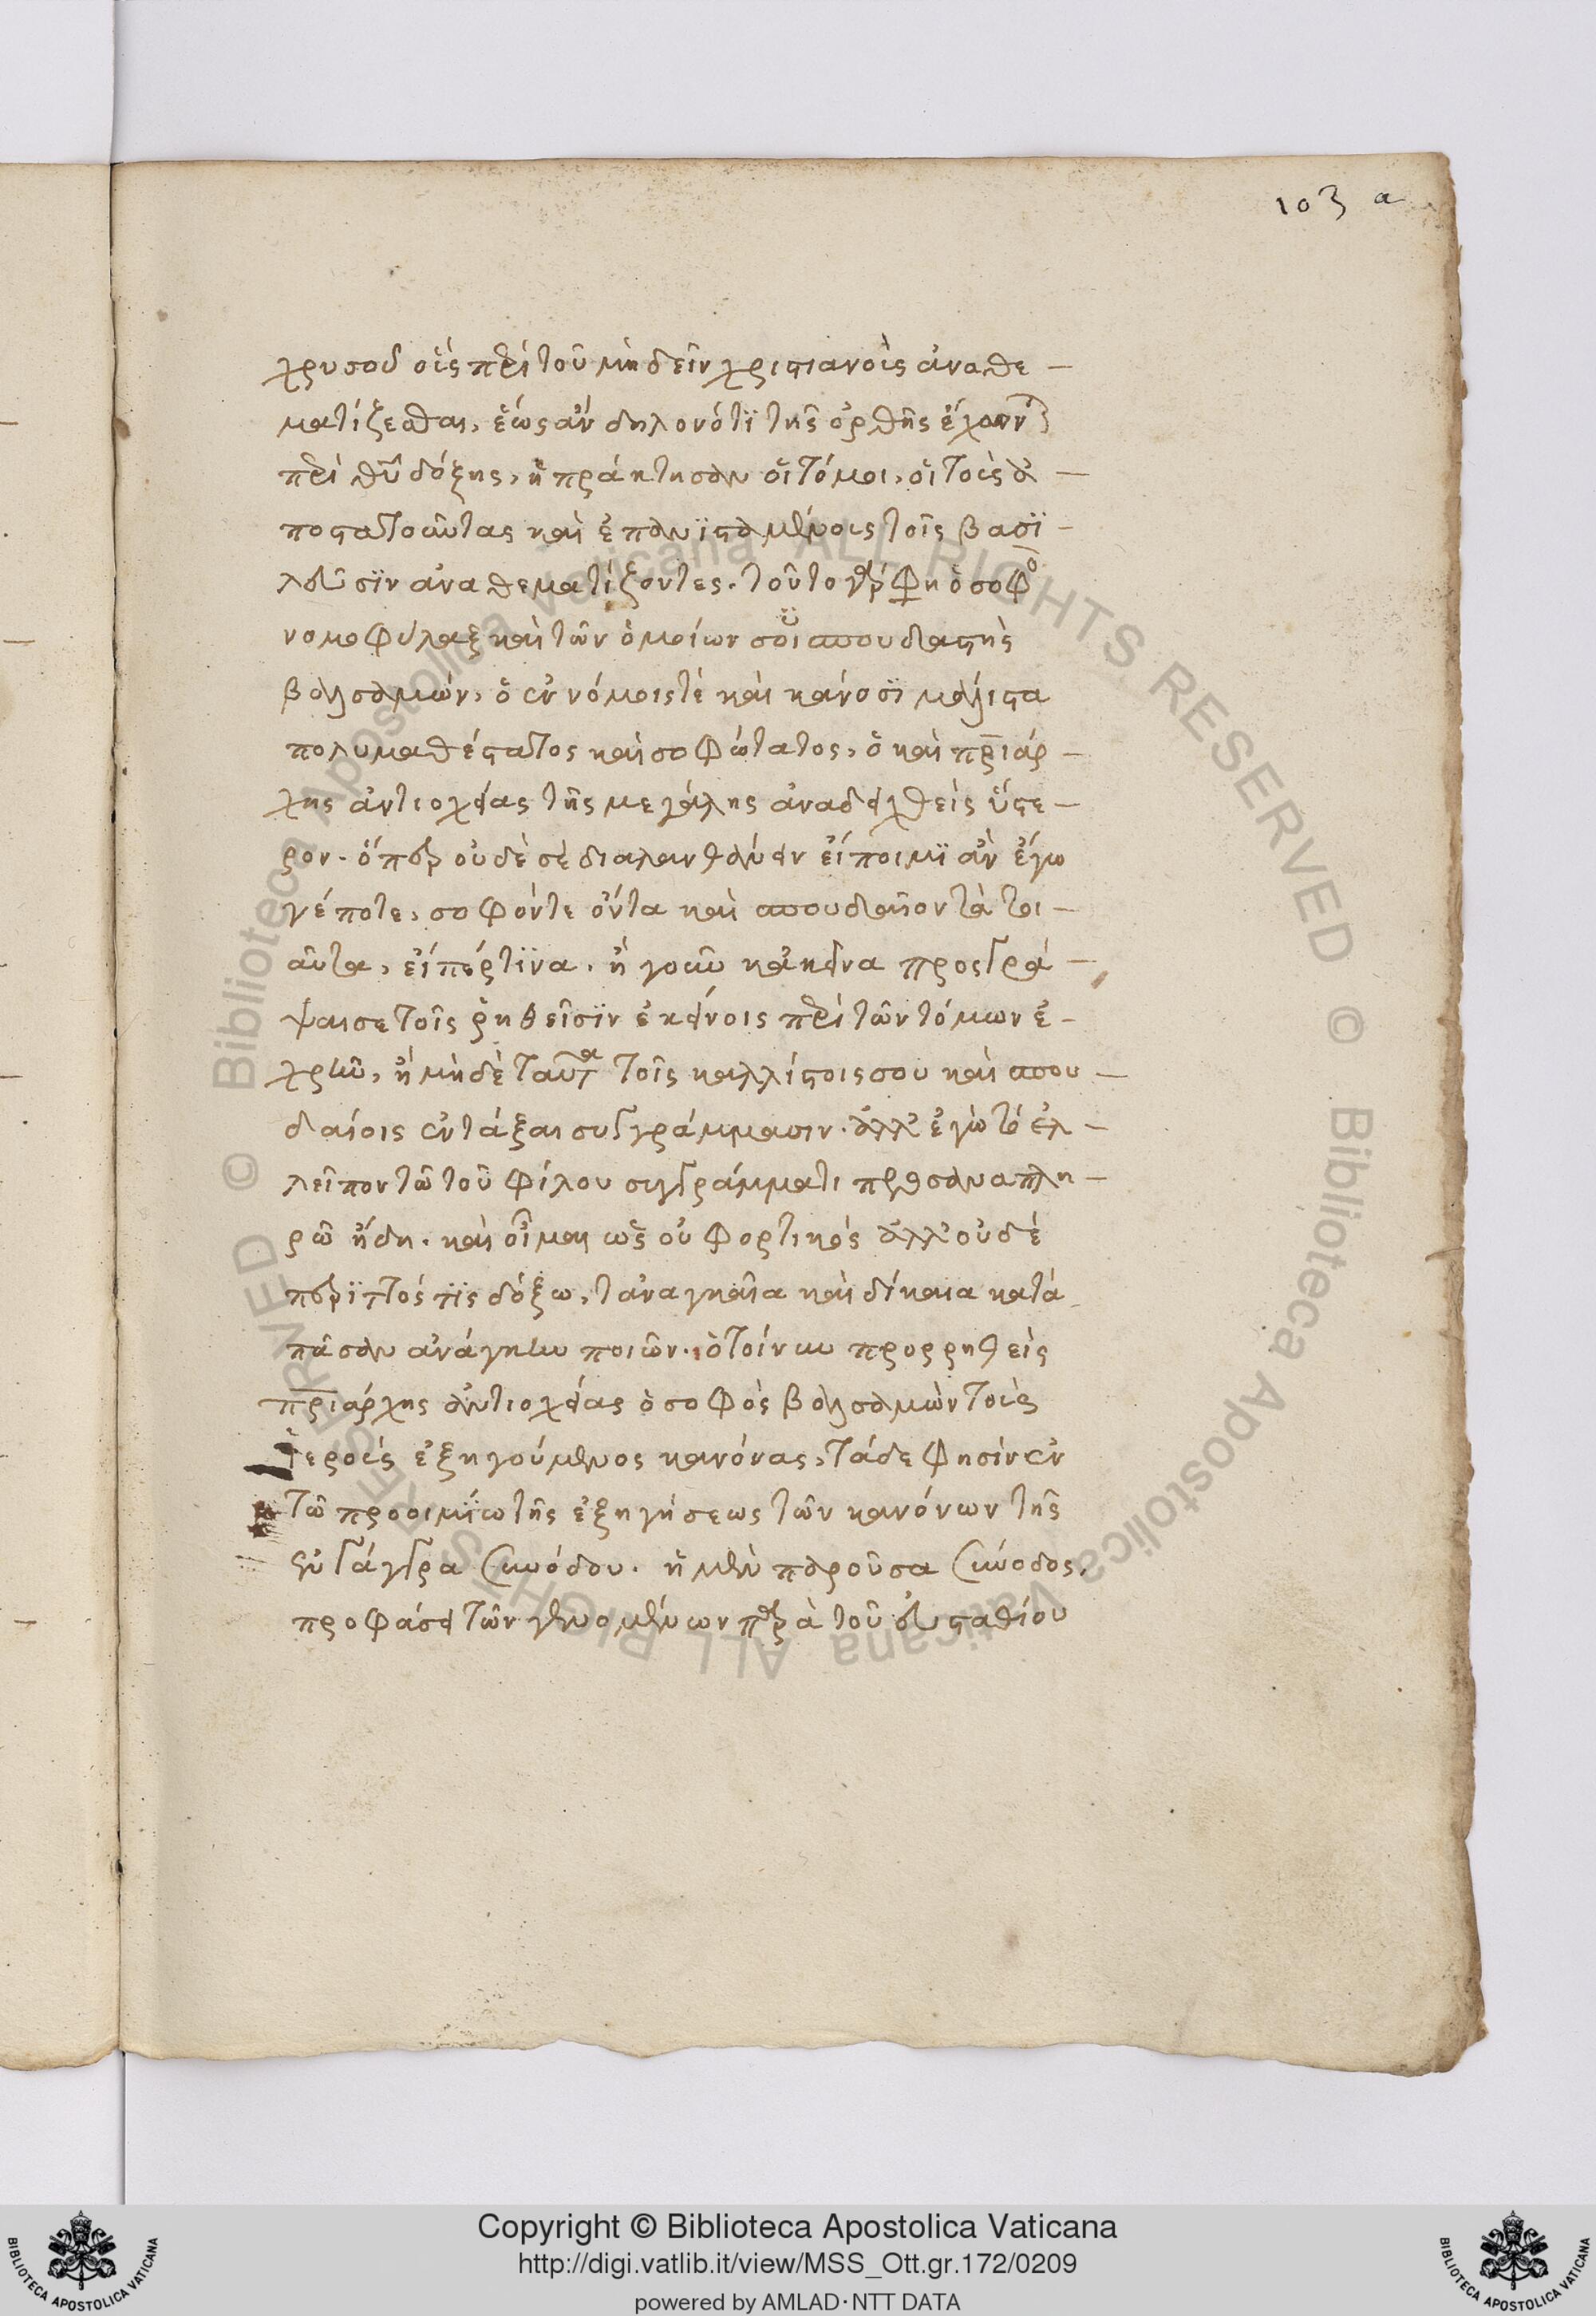 103 a
χρυσοῦς περὶ τοῦ μὴ δεῖν χριστιανοὺς ἀναθε –
ματίζεσθαι, ἕως ἂν δηλονότϊ τῆς ὀρθῆς ἔχοιντο
περὶ θυ δόξης, ἠπράκτησαν οἱ τόμοι, οἱ τοὺς ἀ –
ποστατοῦντας καὶ ἐπανϊσταμένους τοῖς βασϊ –
λεῦσϊν ἀναθεματίζοντες. τοῦτο γάρ φη ὁ σοφὸ
νομοφύλαξ καὶ τῶν ὁμοίων σοϊ σπουδαστὴς
βαλσαμών, ὁ ἐν νόμοις τὲ καὶ κανόσϊ μάλιστα
πολυμαθέστατος καὶ σοφώτατος, ὁ καὶ πριάρ –
χης ἀντιοχείας τῆς μεγάλης ἀναδειχθεὶς ὕστε –
ρον. ὅπερ οὐδὲ σὲ διαλανθάνειν εἴποιμϊ ἂν ἔγω
γέ ποτε, σοφόν τε ὄντα καὶ σπουδαῖον τὰ τοι –
αῦτα, εἴπέρ τϊνα. ἢ γοῦν κἀκεῖνα προσγρά –
ψαι σε τοῖς ῥηθεῖσϊν ἐκείνοις περὶ τῶν τόμων ἐ –
χρῆν, ἢ μὴδὲ ταῦτα τοῖς καλλίστοις σου καὶ σπου –
δαίοις ἐντάξαι συγγράμμασιν. ἀλλ' ἐγὼ τὸ ἐλ –
λεῖπον τῶ τοῦ φίλου συγγράμματι προσαναπλη –
ρῶ ἤδη. καὶ οἶμαι ὡς οὐ φορτικὸς ἀλλ' οὐδὲ
περϊττός τϊς δόξω, τἀναγκαῖα καὶ δίκαια κατὰ
πᾶσαν ἀνάγκην ποιῶν. ὁ τοίνυν προρρηθεὶς
πριάρχης ἀντιοχείας ὁ σοφὸς βαλσαμὼν τοὺς
ἱεροὺς ἐξηγούμενος κανόνας, τάδε φησὶν ἐν
τῶ προοιμίω τῆς ἐξηγήσεως τῶν κανόνων τῆς
ἐν γάγγρα συνόδου. ἡ μὲν παροῦσα σύνοδος,
προφάσει τῶν γενομένων παρὰ τοῦ εὐσταθίου
Copyright © Biblioteca Apostolica Vaticana
http://digi.vatlib.it/view/MSS_Ott.gr.172/0209
powered by AMLAD·NTT DATA